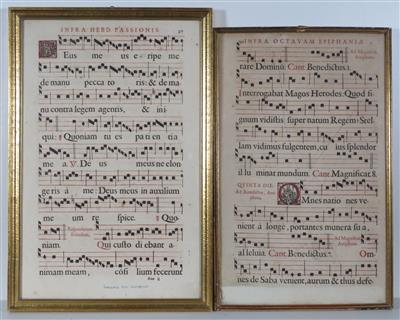 INFRA HEBD PASSIONIS
Eus me us e ripe me
de manu pecca to ris: & de ma
nu contra legem agentis, & ini
qui: Quoniam tu es pa tien tia
me a. V. De us me us ne elon
geris à me: Deus meus in auxilium
me um re spice. Quo
niam. Qui custo di ebant a
nimam meam, con silium fecerunt
INFRA OCTAVAM EPIPHANIÆ
Ad Magnificat
Antiphona.
rare Dominū. Cant. Benedictus.
Interrogabat Magos Herodes: Quod si
gnum vidistis super natum Regem: Stel
lam vidimus fulgentem, cu ius splendor
il lu minat mundum. Cant. Magnificat 8.
QVINTA DIE.
Ad Benedictus, Anti
phona.
Omnes natio nes ve
nient à longè, portantes munera su a,
al le luia. Cant. Benedictus.
Ad Magnificat
Antiphona.
Om
nes de Saba venient, aurum & thus defe